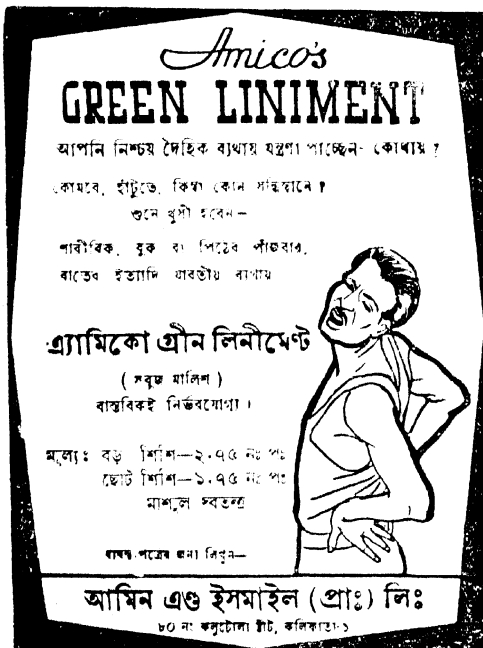 Amico's
GREEN LINIMENT
আপনি নিশ্চয় দৈহিক ব্যথায় যন্ত্রণা পাচ্ছেন- কোথায় ?
কোমরে, হাঁটুতে, কিম্বা কোন সন্ধিস্থানে ?
শুনে খুসী হবেন—
শারীরিক, বুক বা পিঠের পাঁজরার,
বাতের ইত্যাদি যাবতীয় ব্যথায়
এ্যামিকো গ্রীন লিনীমেণ্ট
( সবুজ মালিশ )
বাস্তবিকই নির্ভরযোগ্য ।
মূল্যঃ বড় শিশি—২.৭৫ নঃ পঃ
ছোট শিশি—১.৭৫ নঃ পঃ
মাশুল স্বতন্ত্র
পত্রের জন্য লিখুন—
আমিন এণ্ড ইসমাইল (প্রাঃ) লিঃ
৮০ নং কলুটোলা ষ্ট্রীট, কলিকাতা-১